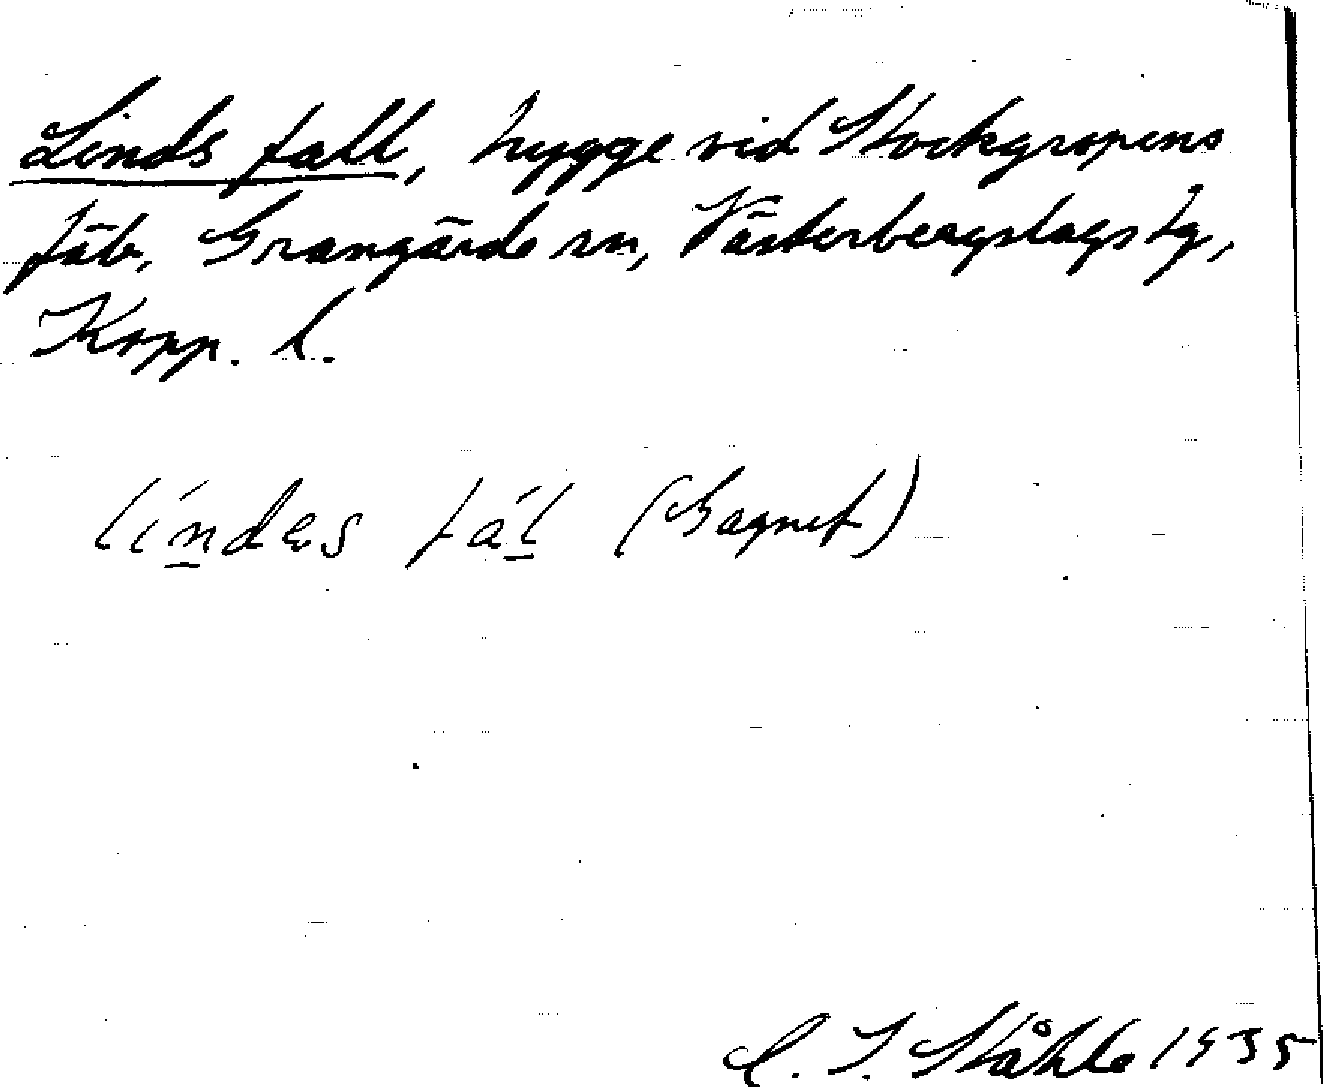 Linds fall, hygge vid Stockgropens
fäb., Grangärde sn, Västerbergslags tg,
Kopp. l.
lindas fal (Gagnef)
C. I. Ståhle 1935